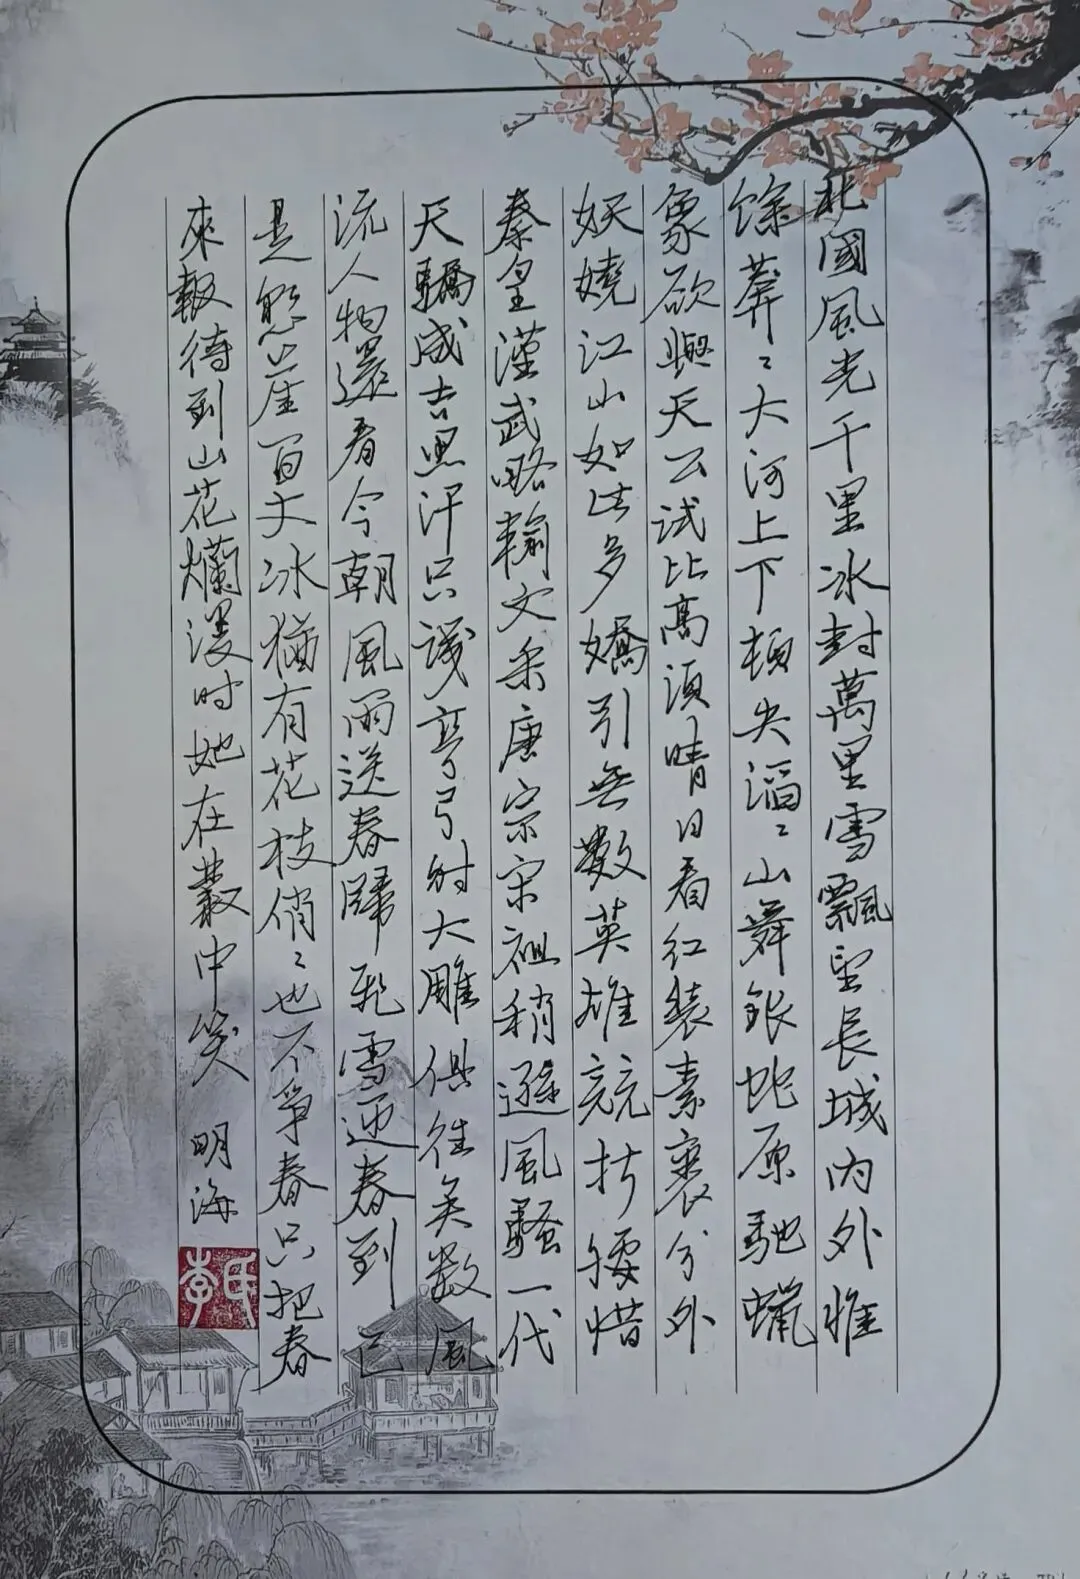 北國風光千里冰封萬里雪飄望長城內外惟
餘莽〻大河上下頓失滔〻山舞銀蛇原馳蠟
象欲與天公試比高須晴日看紅裝素裹分外
妖嬈江山如此多嬌引無數英雄競折腰惜
秦皇漢武略輸文采唐宗宋祖稍遜風騷一代
天驕成吉思汗只識彎弓射大雕俱往矣數風
流人物還看今朝風雨送春歸飛雪迎春到已
是懸崖百丈冰猶有花枝俏〻也不爭春只把春
來報待到山花爛漫时她在叢中笑 明海
李氏